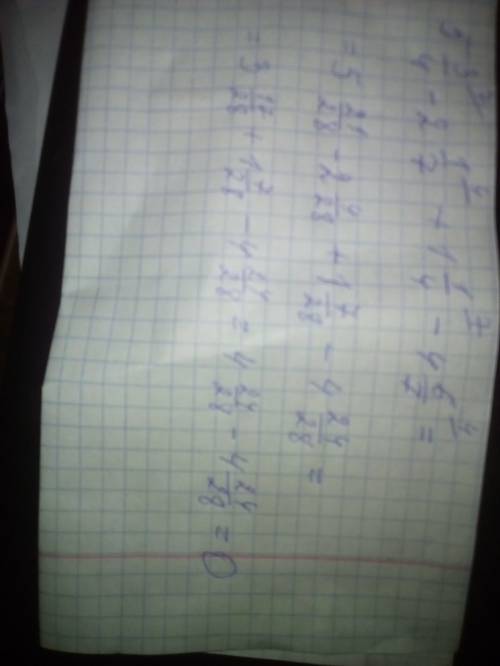 5 3/4 - 2 1/7 + 1 1/4 - 4 6/7 =
= 5 21/28 - 2 4/28 + 1 7/28 - 4 24/28 =
= 3 17/28 + 1 7/28 - 4 24/28 = 4 24/28 - 4 24/28 = 0